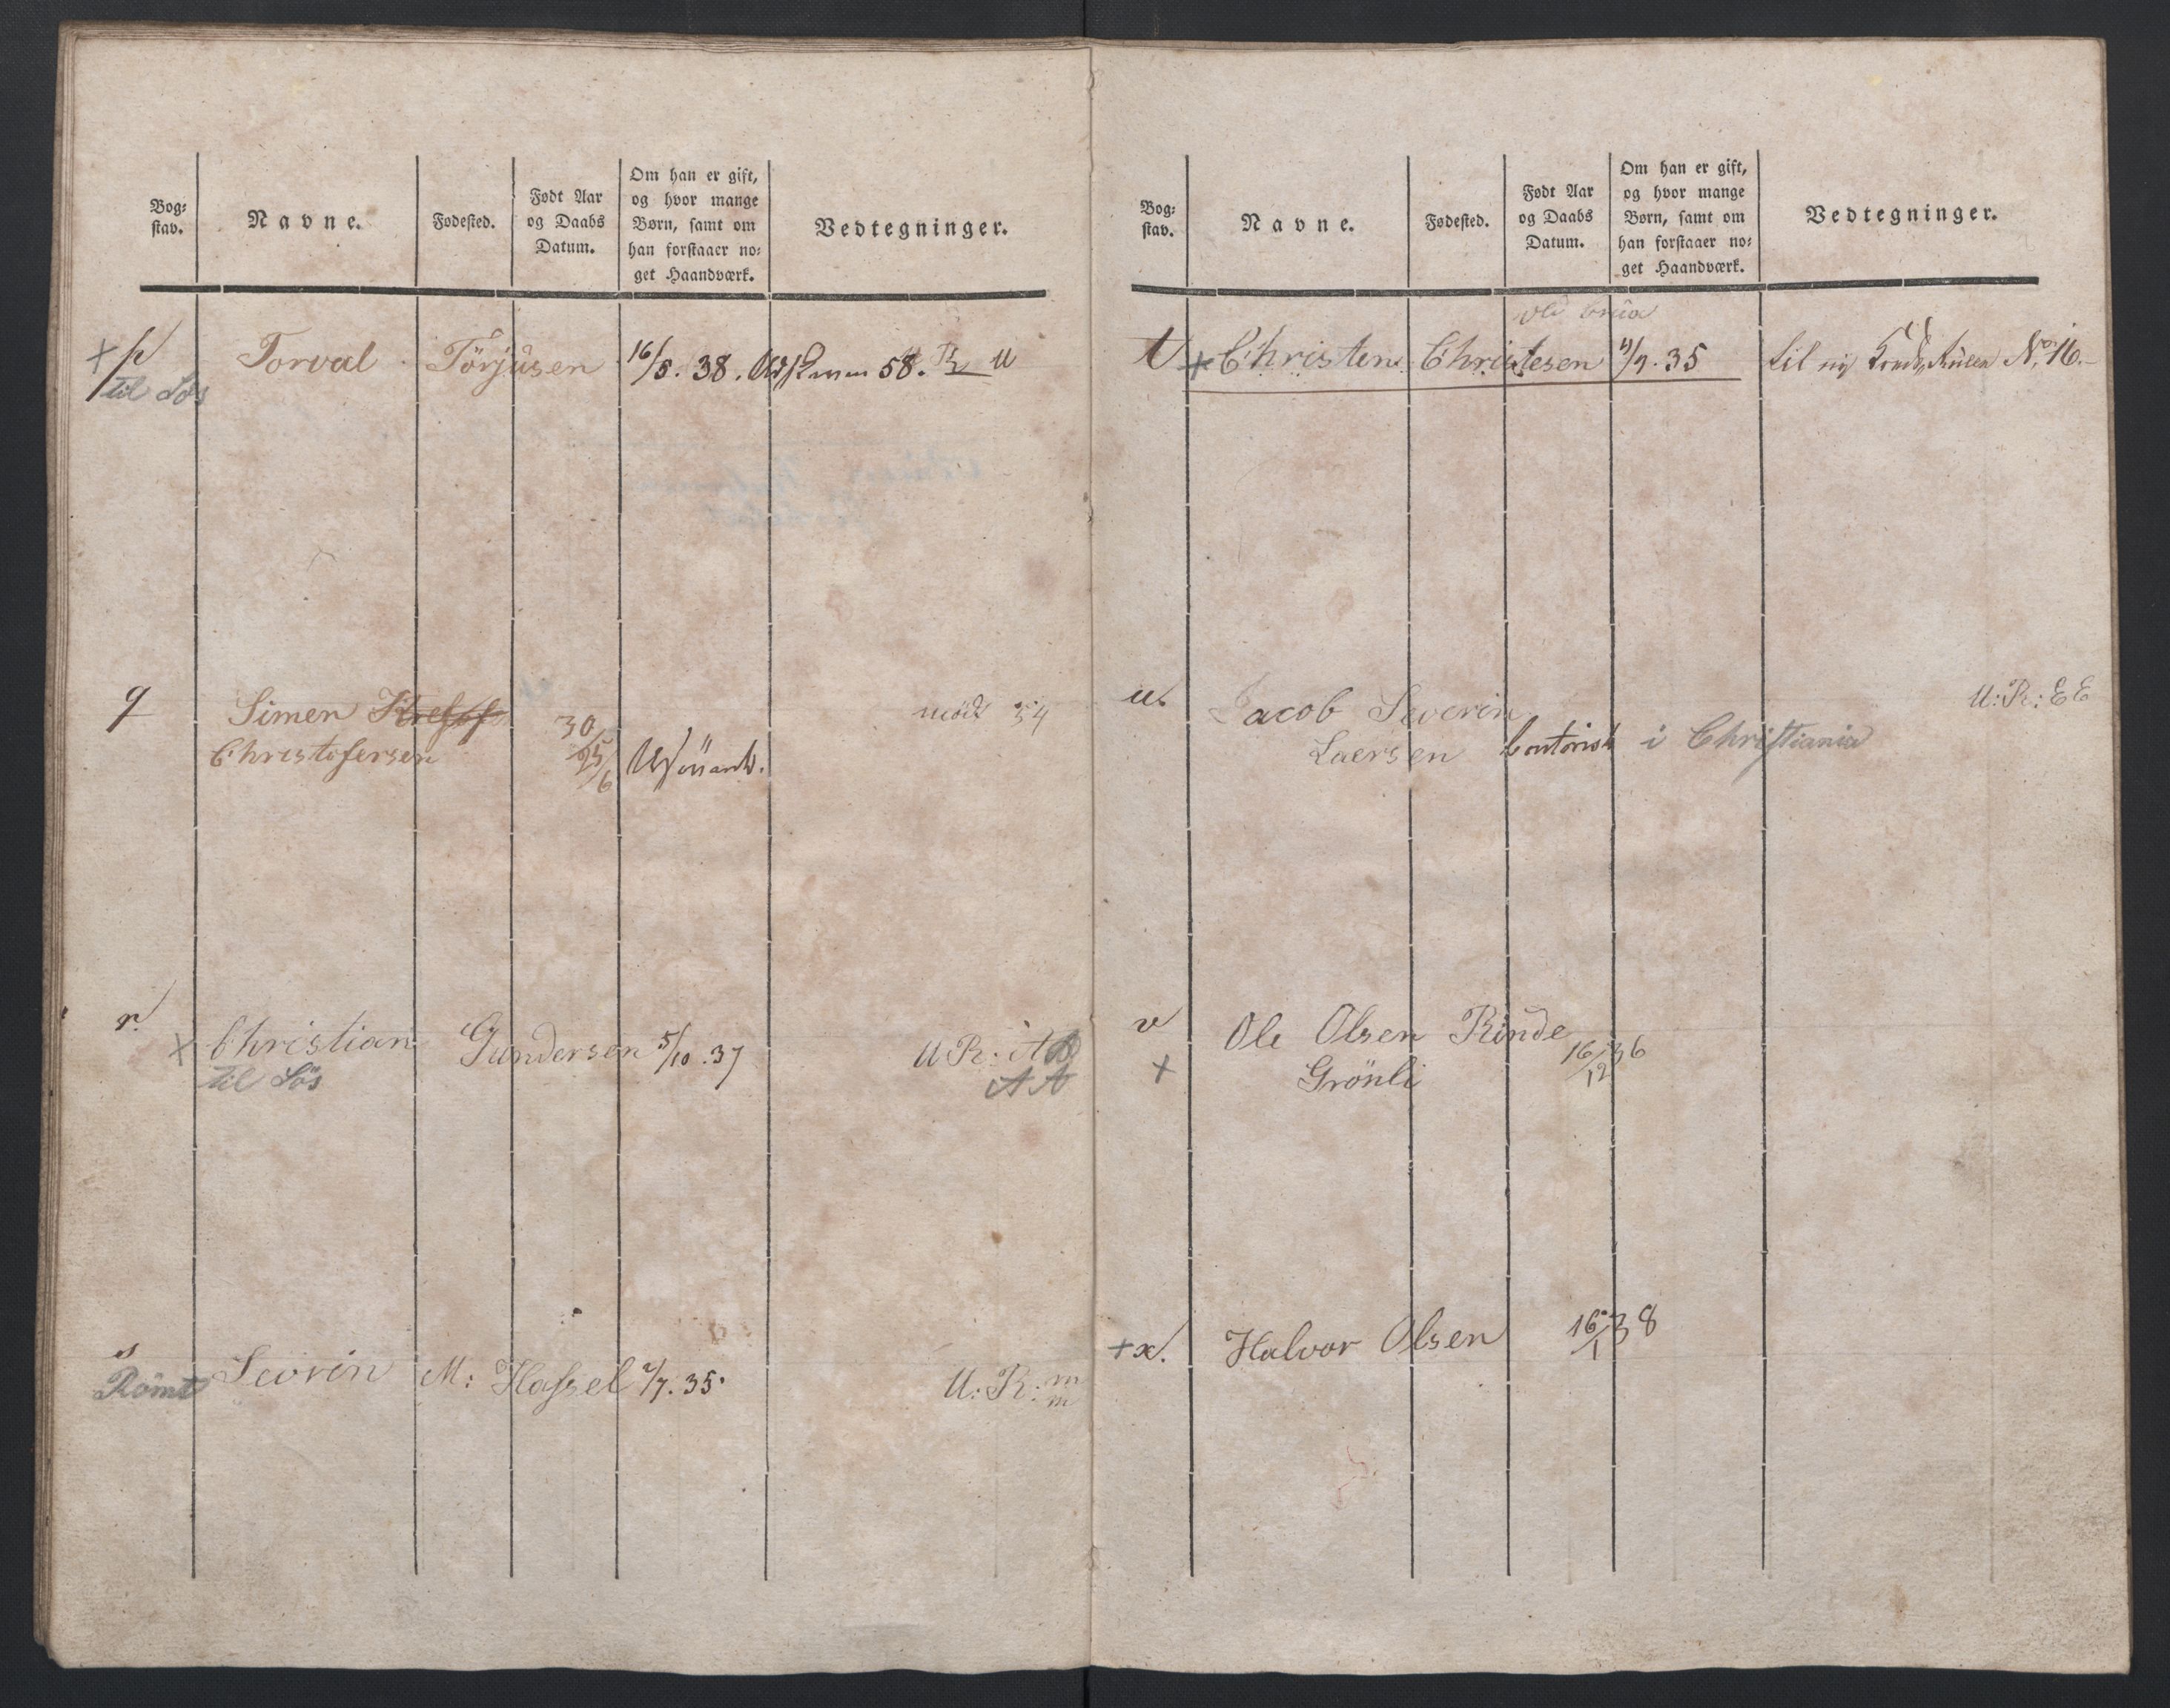 Bog-
stav.
Navne.
Fødested.
Født Aar
og Daabs
Datum.
Om han er gift,
og hvor mange
Børn, samt om
han forstaaer no-
get Haandværk.
Vedtegninger.
+ p
til Søs
Torval Törjüsen 16/5. 38. 58. R U
q
Simen
Christofersen
30
25/6
mödt 54
r.
+ Christian Gundersen 5/10. 37 U R: A A
til Søs A A
s
Römt
Sevrin M: Hassel 2/7. 35. U: R: m
m
Bog-
stav.
Navne.
Fødested.
Født Aar
og Daabs
Datum.
Om han er gift,
og hvor mange
Børn, samt om
han forstaaer no-
get Haandværk.
Vedtegninger.
t + Christen Christesen 35 til ny No 16.
u. Jacob Severin U: R: E E
Laersen Contorist i Christiania
v Ole Olsen Rinde 16/12 36
+ Grönli
+ x. Halvor Olsen 16/1 38